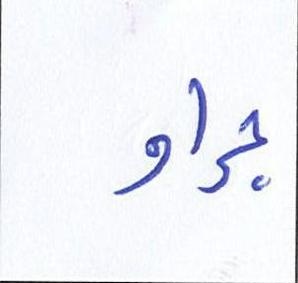 جراو